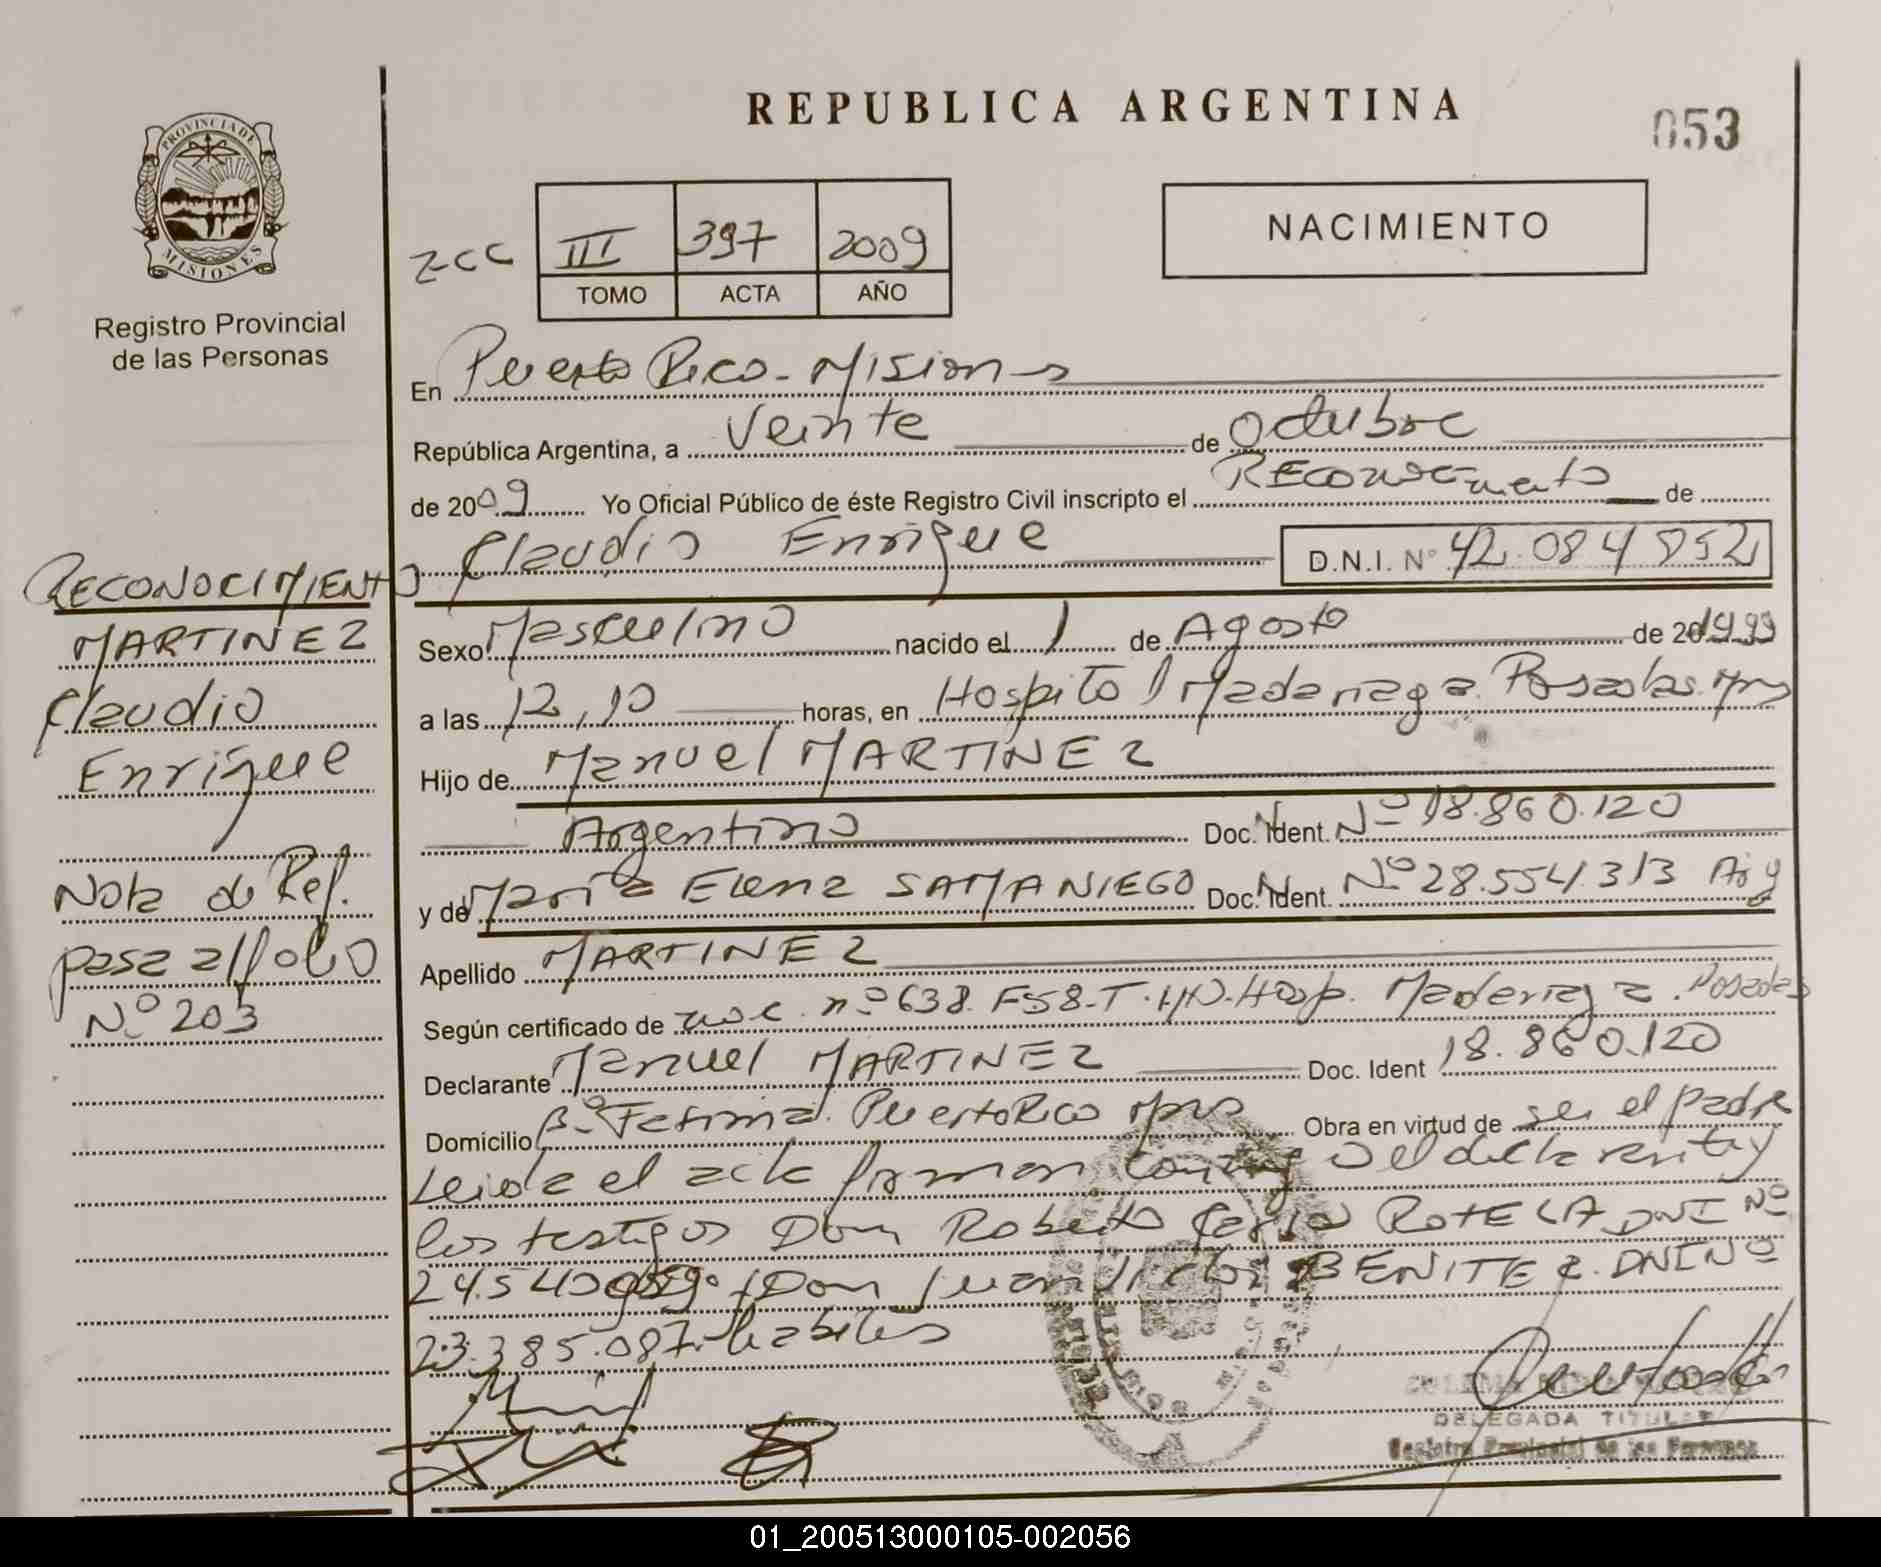 REPUBLICA ARGENTINA
053
PROVINCIA DE
MISIONES
Registro Provincial
de las Personas
NACIMIENTO
III 397 2009
TOMO ACTA AÑO
En Puerto Rico - Misiones
República Argentina, a Veinte de Octubre
de 2009 Yo Oficial Público de éste Registro Civil inscripto el Reconocimiento de
Claudio Enrique D.N.I. Nº 42.084852
Sexo Masculino nacido el 1 de Agosto de 1999
a las 12,10 horas, en Hospital Madariaga. Posadas. Mns
Hijo de Manuel MARTINEZ
Argentino Doc. Ident. Nº 18.860.120
y de María Elena SAMANIEGO Doc. Ident. Nº 28.554.313 Arg
Apellido MARTINEZ
Según certificado de nac. nº 638. F58-T. Hosp. Madariaga. Posadas
Declarante Manuel MARTINEZ Doc. Ident 18.860.120
Domicilio Bº Fatima. Puerto Rico Mns Obra en virtud de ser el padre
Leida el acta firman conmigo el declarante y
los testigos Don Roberto ROTELA DNI Nº
Don Juan BENITEZ. DNI Nº
23.385.087. habiles
DELEGADA TITULAR
Registro Provincial de las Personas
RECONOCIMIENTO
MARTINEZ
Claudio
Enrique
Nota de Ref.
pasa al folio
Nº 203
01_200513000105-002056